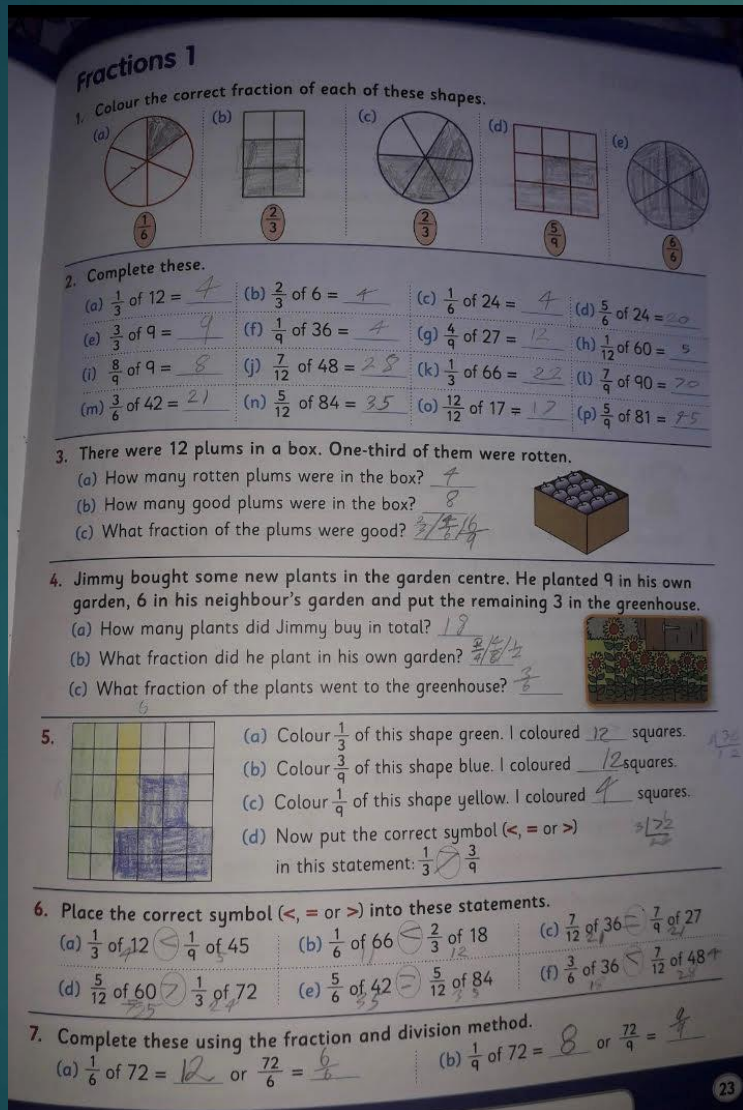 Fractions 1
1. Colour the correct fraction of each of these shapes.
(a) (b) (c) (d) (e)
1/6 2/3 2/3 5/9 6/6
2. Complete these.
(a) 1/3 of 12 = 4 (b) 2/3 of 6 = 4 (c) 1/6 of 24 = 4 (d) 5/6 of 24 = 20
(e) 3/3 of 9 = 9 (f) 1/9 of 36 = 4 (g) 4/9 of 27 = 12 (h) 1/12 of 60 = 5
(i) 8/9 of 9 = 8 (j) 7/12 of 48 = 28 (k) 1/3 of 66 = 22 (l) 7/9 of 90 = 70
(m) 3/6 of 42 = 21 (n) 5/12 of 84 = 35 (o) 12/12 of 17 = 17 (p) 5/9 of 81 =
3. There were 12 plums in a box. One-third of them were rotten.
(a) How many rotten plums were in the box? 4
(b) How many good plums were in the box? 8
(c) What fraction of the plums were good? 2/3 / 4/6 / 6/9
4. Jimmy bought some new plants in the garden centre. He planted 9 in his own
garden, 6 in his neighbour's garden and put the remaining 3 in the greenhouse.
(a) How many plants did Jimmy buy in total? 18
(b) What fraction did he plant in his own garden? 1/2
(c) What fraction of the plants went to the greenhouse?
5. (a) Colour 1/3 of this shape green. I coloured 12 squares.
(b) Colour 3/9 of this shape blue. I coloured 12 squares.
(c) Colour 1/9 of this shape yellow. I coloured 4 squares.
(d) Now put the correct symbol (<, = or >)
in this statement: 1/3 3/9
6. Place the correct symbol (<, = or >) into these statements.
(a) 1/3 of 12 < 1/9 of 45 (b) 1/6 of 66 < 2/3 of 18 (c) 7/12 of 36 = 7/9 of 27
(d) 5/12 of 60 > 1/3 of 72 (e) 5/6 of 42 = 5/12 of 84 (f) 3/6 of 36 < 7/12 of 48
7. Complete these using the fraction and division method.
(a) 1/6 of 72 = 12 or 72/6 = 6/6 (b) 1/9 of 72 = 8 or 72/9 =
23